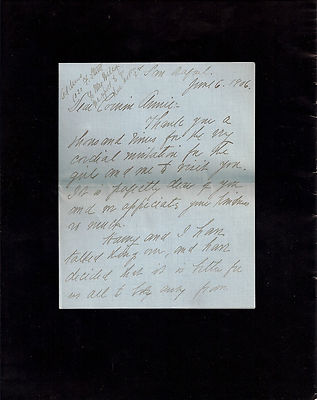 June 6. 1906.
Dear Cousin Annie-
Thank you a
thousand times for the very
cordial invitation for the
girls and me to visit you.
It is perfectly dear of you
and we appreciate your kindness
so much.
Harry and I have
talked it over, and have
decided that it is better for
us all to stay away from